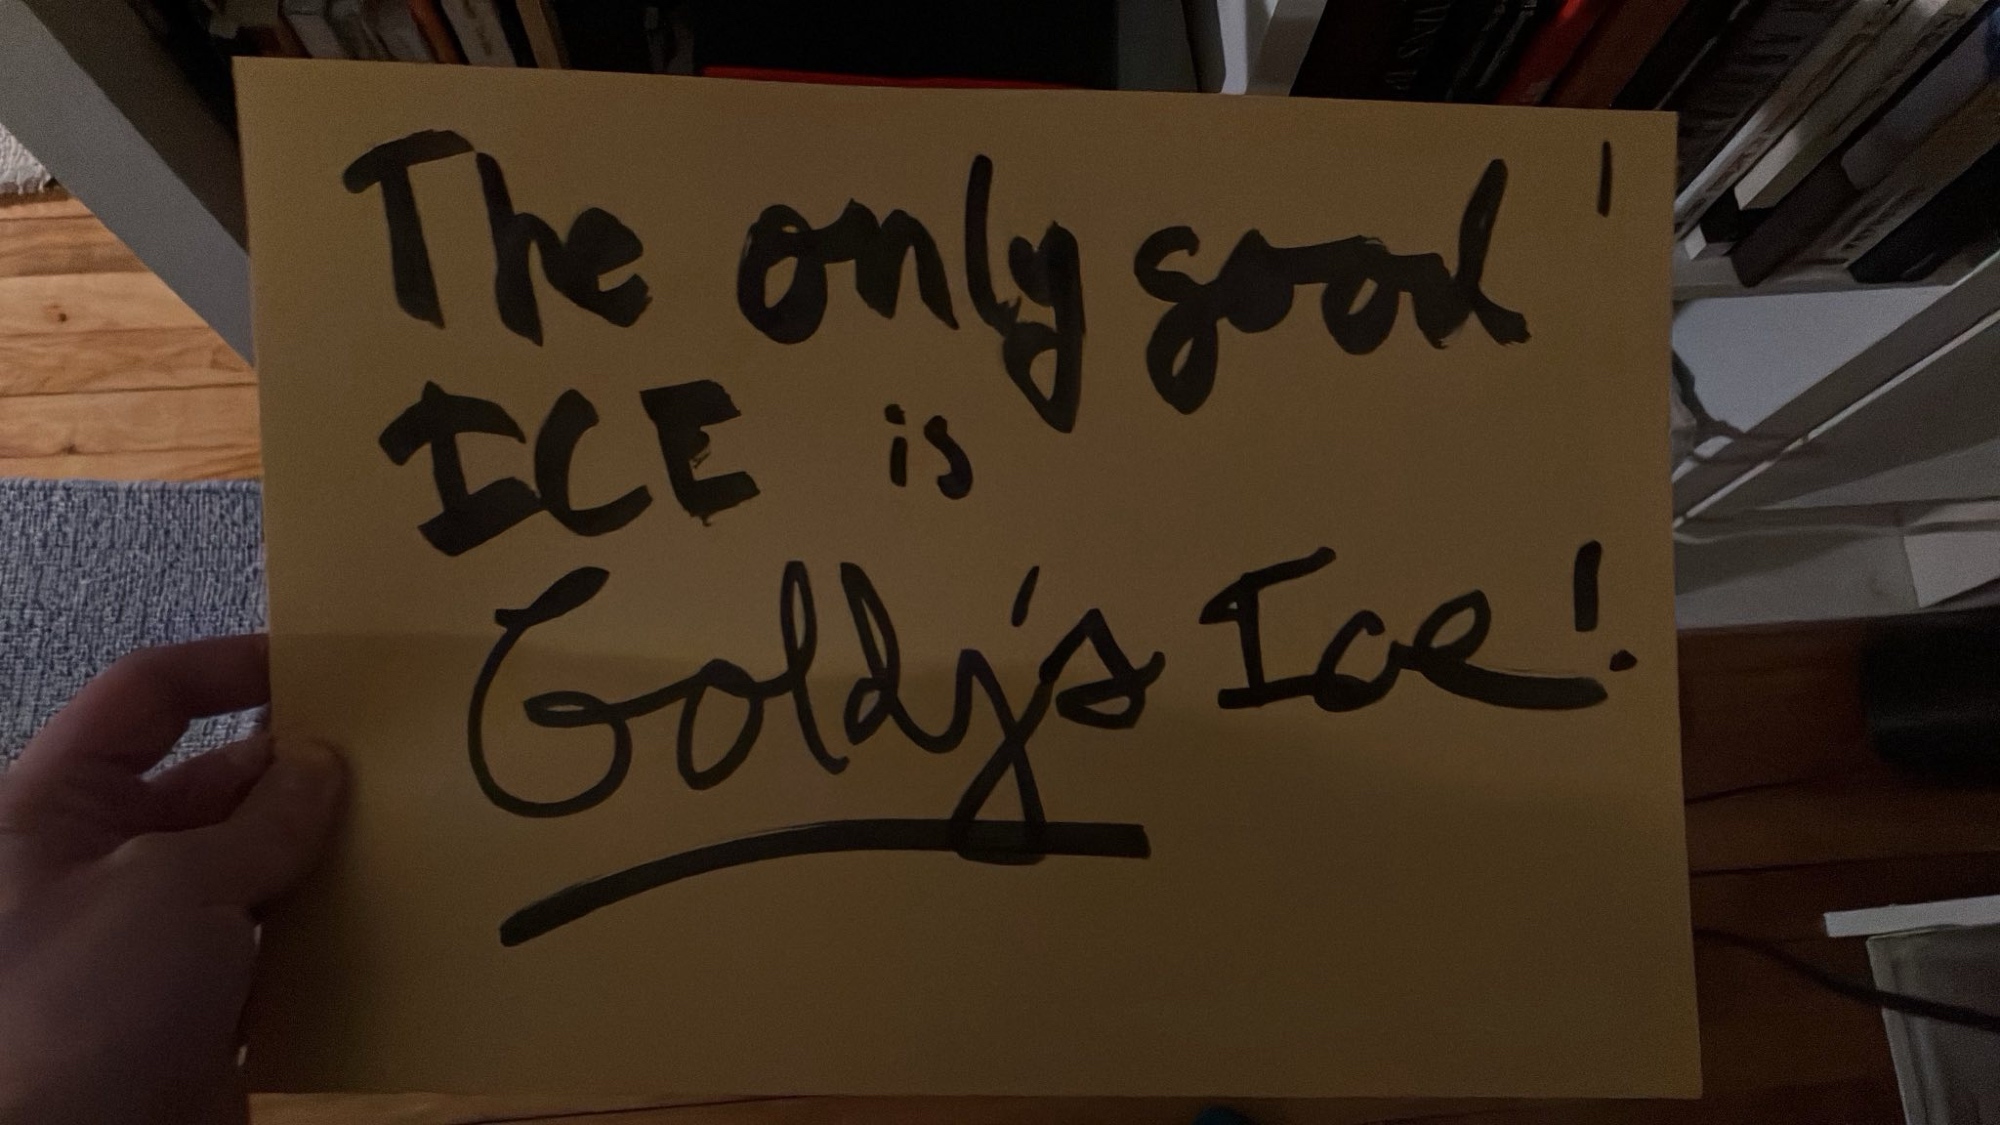 The only good
ICE is
Goldy's Ice!